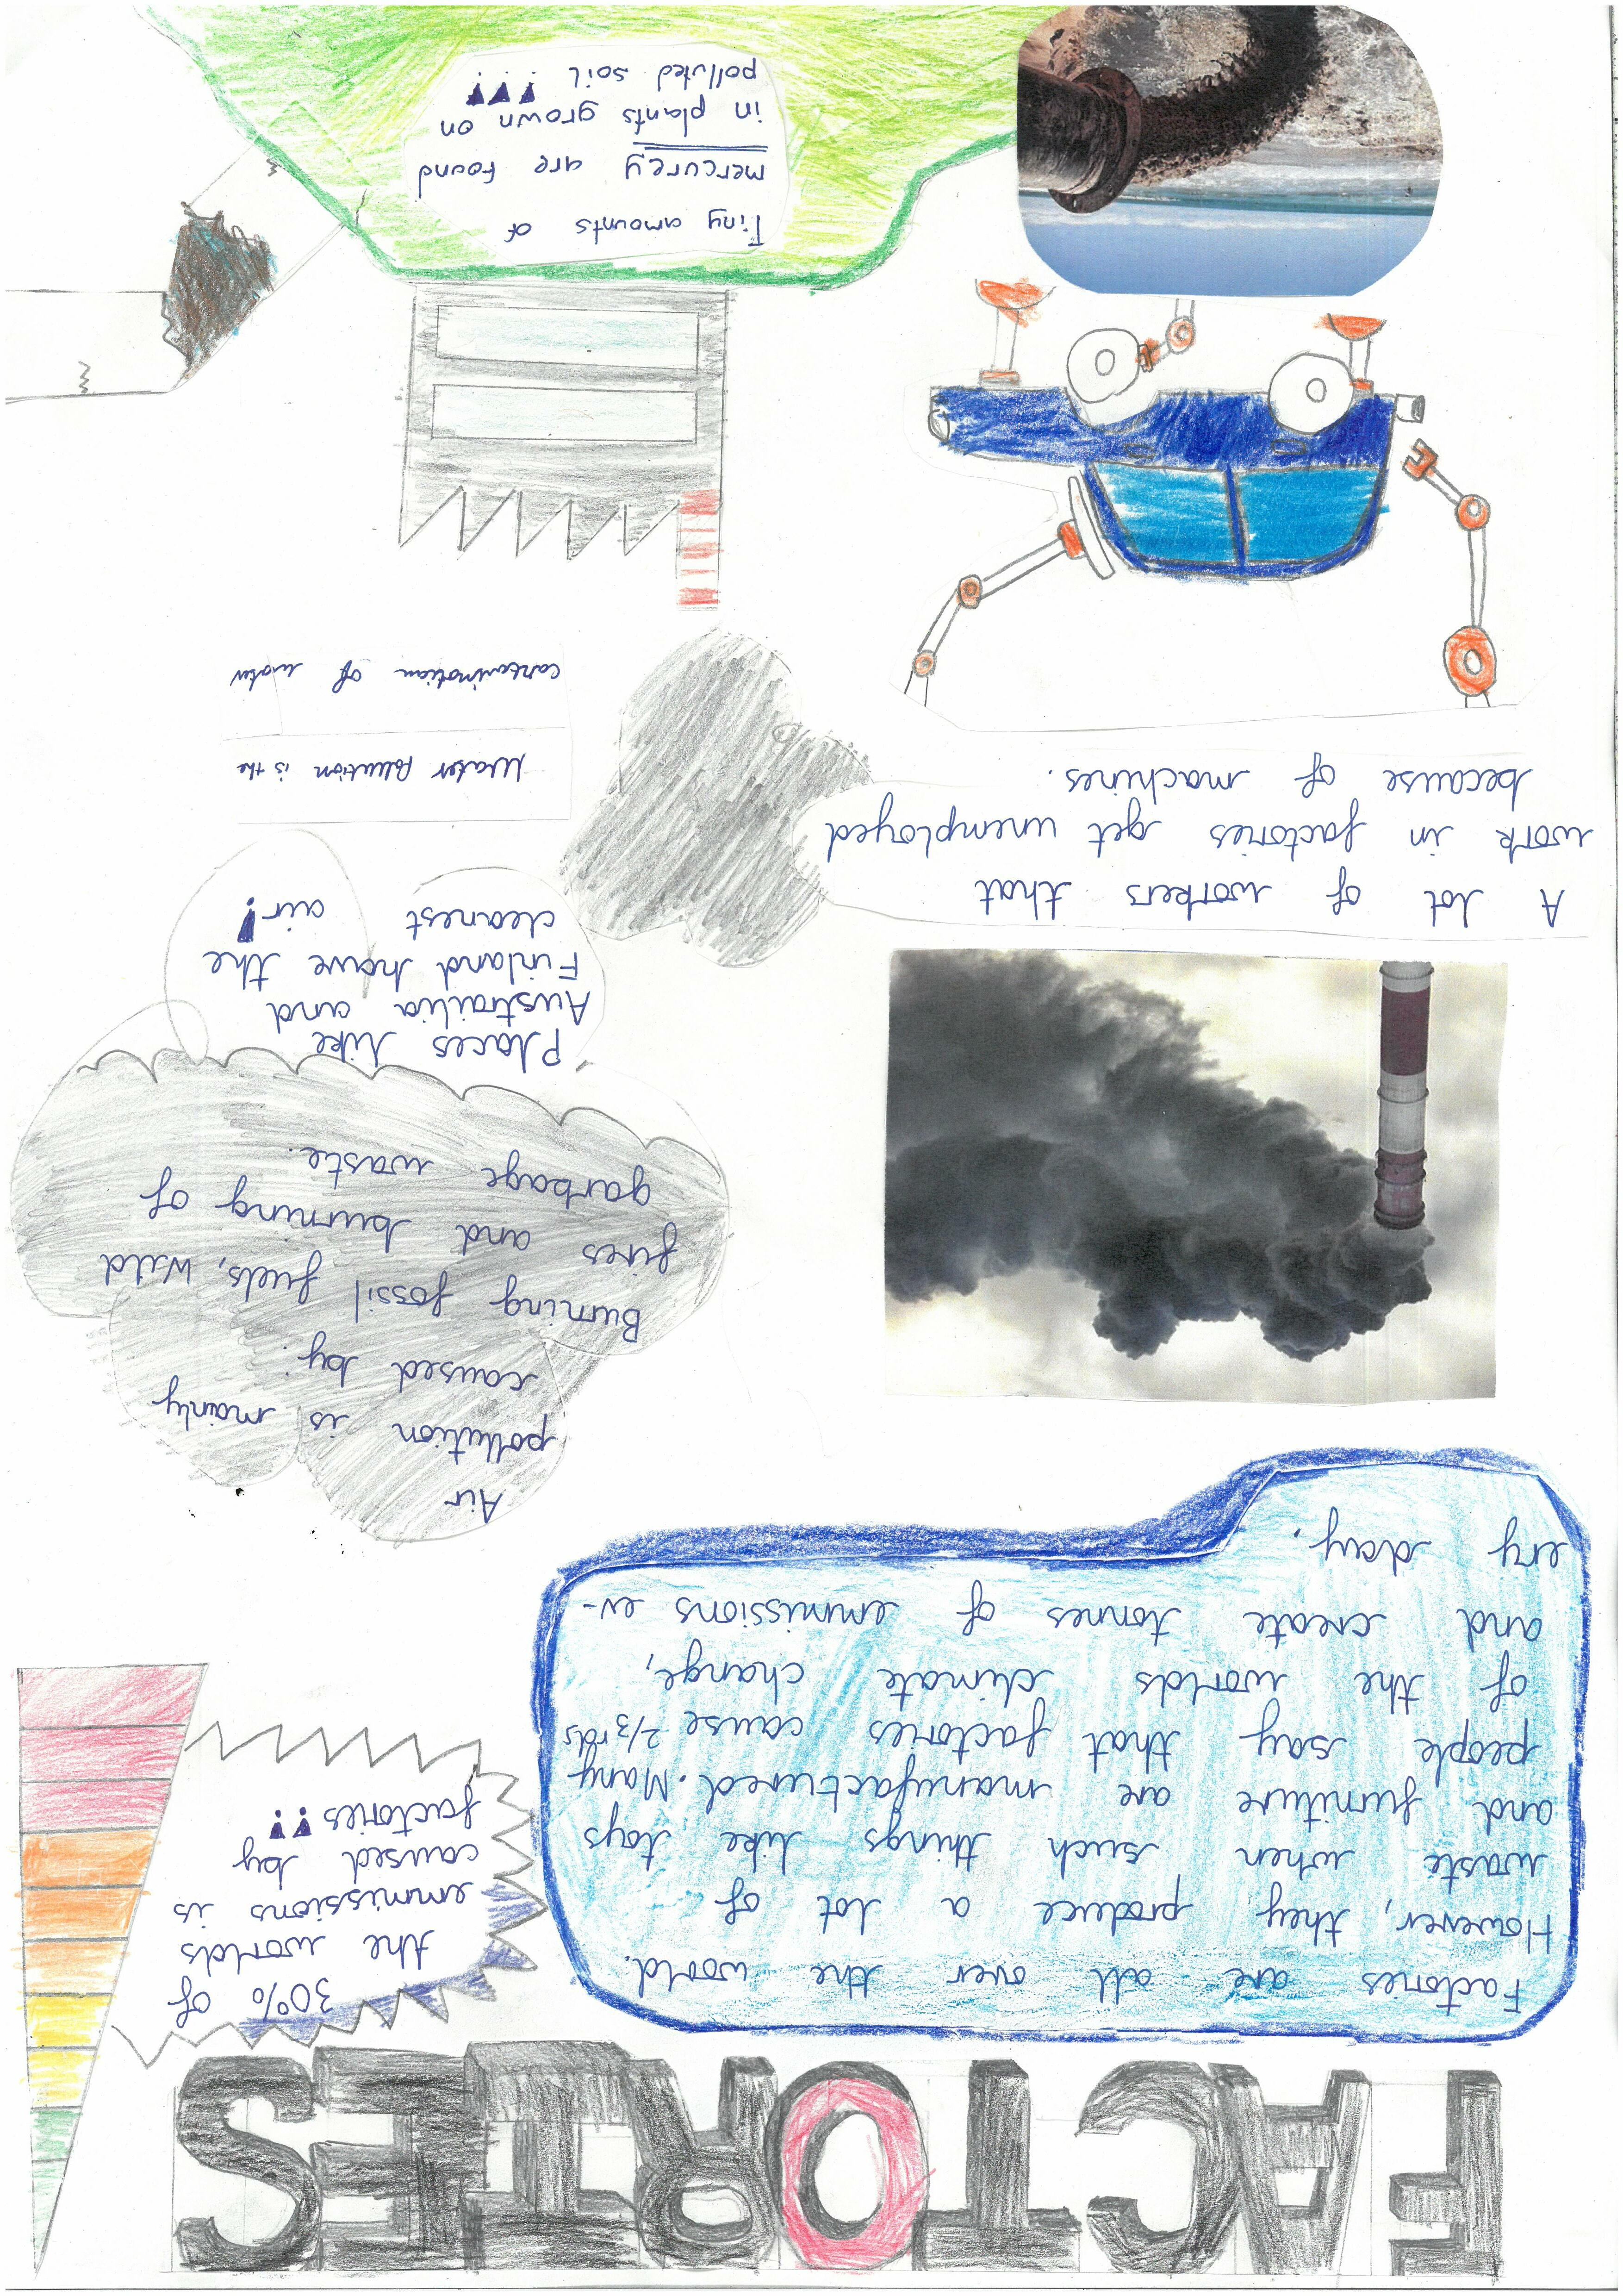 FACTORIES
Factories are all over the world.
However, they produce a lot of
waste when such things like toys
and furniture are manufactured. Many
people say that factories cause 2/3rds
of the worlds climate change,
and create tonnes of emmissions ev-
ery day.
30% of
the worlds
emmissions is
caused by
factories !!
Air
pollution is mainly
caused by:
Burning fossil fuels, wild
fires and burning of
garbage waste.
Places like
Austrailia and
Finland have the
cleanest air!
A lot of workers that
work in factories get unemployed
because of machines.
Water Pollution is the
contamination of water
Tiny amounts of
mercurey are found
in plants grown on
polluted soil !!!